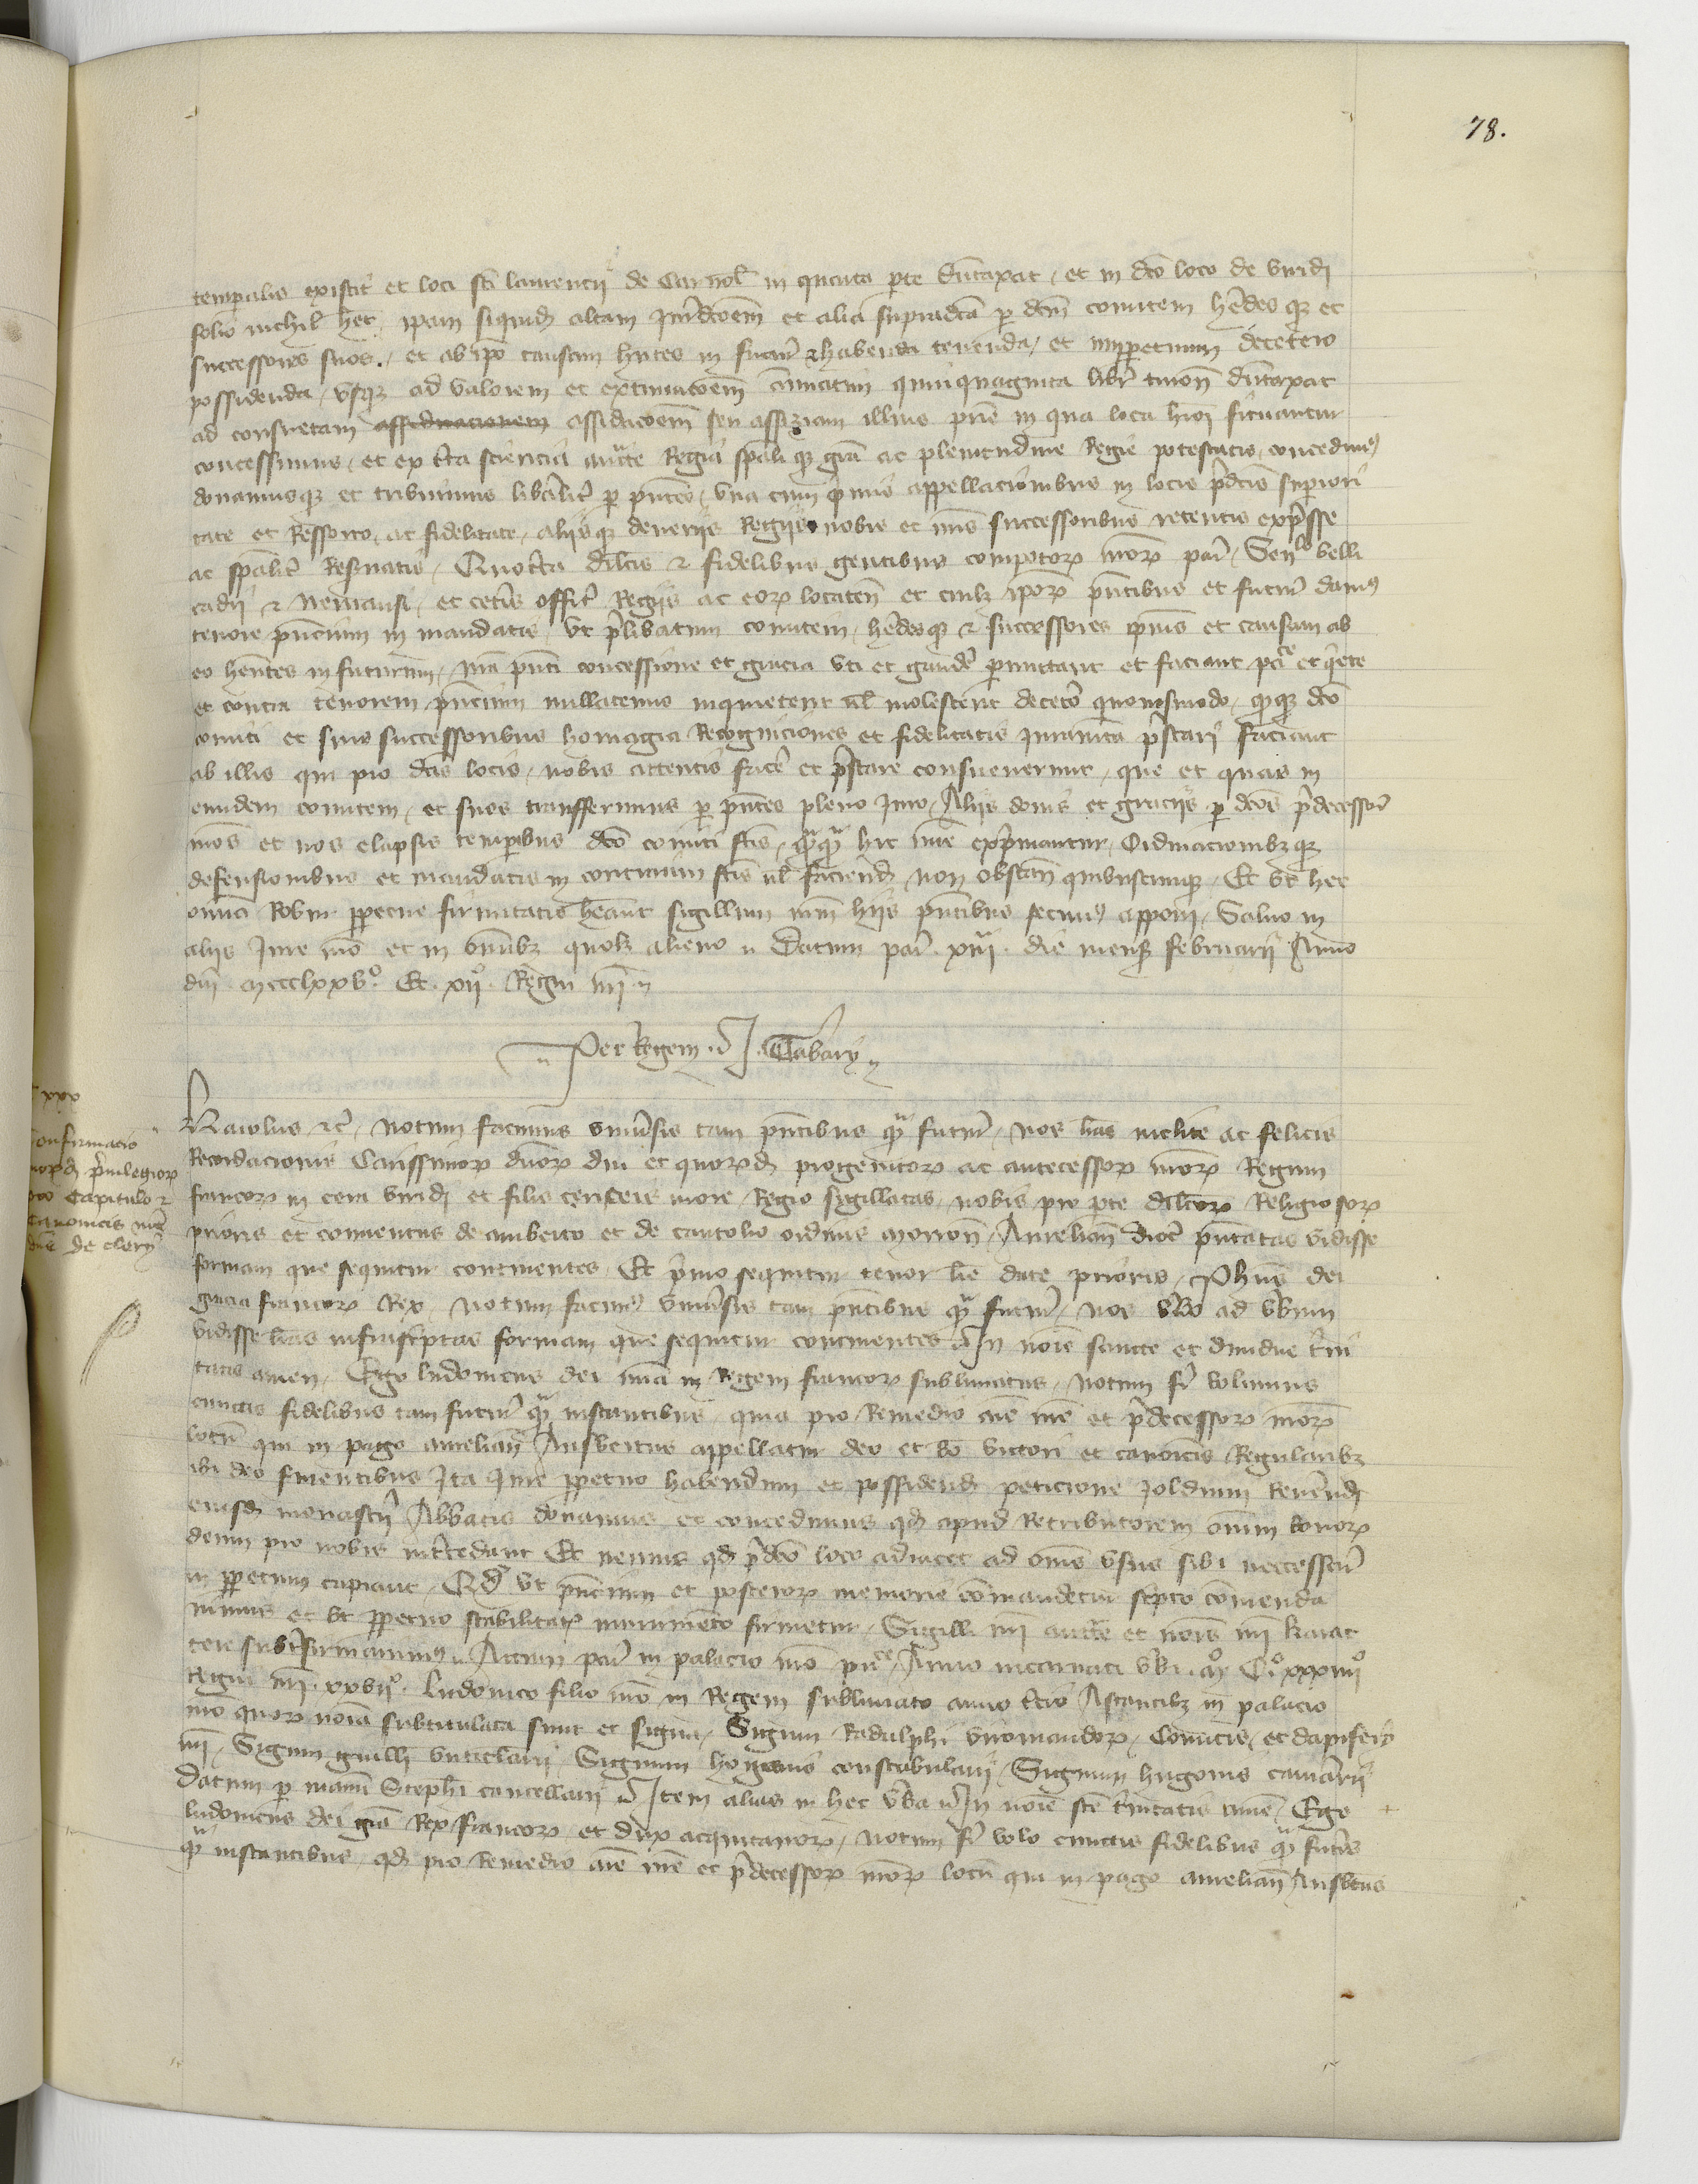 78.
temporalis existit et loci sti laurencii de Carnol in quarta parte dumtaxat, et in dco loco de viridi
folio nichil het, ipam siquid altam Jurdcoem et alia supradca per dcm comitem hedes qz et
successores suos, et ab ipo causam hntes in futur habenda tenenda, et imperpetuum decetero
possidenda, usqz ad valorem et extimacoem annuatim quinquaginta libr turon dutaxat
ad consuetam assiduacoem seu assiziam illius prie in qua loca huoi situantur
concessimus, et ex certa sciencia aucte Regia spali qz gra ac plenitudine Regie potestatis, concedimus
donamusqz et tribuimus liberalit per pntes, una cum primis appellacionibus in locis predcis superiori
tate et Ressorto, ac fidelitate, aliisqz deveriis Regiis nobis et nris successoribus retentis expresse
ac spalit Reservatis, Quocirca dilcis et fidelibus gentibus compotorum nrorum par, Senlo belli
cadri et Nemausi, et cetis offic Regiis ac eorum locaten et cuilz iporum pntibus et futur damus
tenore pncium in mandatis, ut prelibatum comitem, hedesqz et successores ipius et causam ab
eo hentes in futurum, nra pnti concessione et gracia uti et gaude permittant et faciant pace et qete
et contra tenorem pncium nullatenus inquietent vel molestent deceto quomodo, qz dco
comiti et suis successoribus homagia Recogniciones et fidelitatis juramta prestari faciant
ab illis qui pro dcis locis, nobis attentis face et prestare consueverunt, que et quas in
eundem comitem, et suos transferimus per pntes pleno jure, Aliis donis et graciis per dcos predecessor
nros et nos elapsis temporibus dco comiti fcis, qz hic mie exprimantur, Ordinacionibz qz
defensionibus et mandatis in contrarium fcis vel faciend non obstan quibuscumqz. Et ut hec
omnia Robur perpetue firmitatis heant sigillum nrm hiis pntibus fecimus apponi, Salvo in
aliis Jure nro et in omibz quolz alieno. Datum par. xiiii. die mens februarii Anno
dni mccclxxvo. Et. xiio. Regni nri
Per Regem. J. Tabary
xxx
Confirmacio
quord privilegiorum
pro Capitulo et
canonicis nre
dne de clery
Karolus etc, Notum facimus univsis tam pntibus qz futur, nos lras inclite ac felicis
Recordacionis Carissimorum dnorum dni et quorumd progenitorum ac antecessorum nrorum Regum
francorum in cera viridi et filis cericeis more Regio sigillatas, nobis pro parte dilcorum Religiosorum
prioris et conventus de amberto et de cantolio ordinis Aurelian dioc pntatas vidisse
formam que sequitur continentes. Et primo sequitur tenor lre date prioris, Phus dei
gracia francorum Rex, Notum facimus univsis tam pntibus qz futur, nos verbo ad verbum
vidisse lras infrascriptas formam que sequitur continentes. In noie sancte et dividue trini
tatis amen. Ego ludovicus dei mia in Regem francorum sublimatus, Notum fi volumus
cunctis fidelibus tam futur qz instantibus, quia pro Remedio aie mee et predecessorum meorum
locu qui in pago aurelian Ansbertus appellatur deo et bo victori et canoicis Regularibz
ibi deo fuientibus Jta perpetuo habendum et possidend peticione Joldrini Reverend
eiusd monastrii Abbatis donamus et concedimus qd apud Retributorem omnium bonorum
deum pro nobis intercedant Et nemus qd predco loco adiacet ad omes usus sibi necessar
in perpetuum capiant, Qd ut pncium et posterorum memorie comandetur scripto comenda
vimus et ut perpetuo stabilitatis munimento firmetur, Sigilli nri aucte et nois nri karac
tere subterfirmavimus. Actum par in palacio nro pu, Anno incarnati verbi. mo. Co. xxxiiiio
Regni nri. xxviio. ludovico filio nro in Regem sublimato anno tercio Astantibz in palacio
nro quorum noia subtitulata sunt et signa, Signum Radulphi viromandorum, Comitis, et dapiferi
nri, Signum guilli buticlarii, Signum hugonis constabularii, Signum hugonis camerarii
Datum per manu Stephi cancellarii. Item alias in hec verba. In noie sce trinitatis ame, Ego
ludovicus dei gra Rex francorum et dux acquitanorum, Notum fi volo cunctis fidelibus qz futuris
qz instantibus, qd pro Remedio aie mee et predecessorum meorum locu qui in pago aurelian Ansbtus